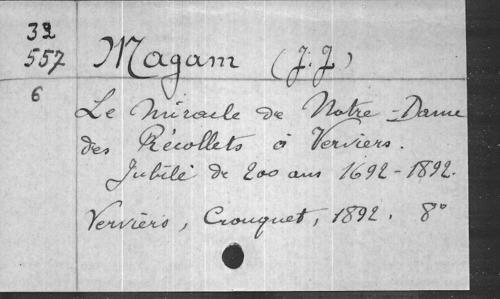 32
557 Magam (J. J.)
6
Le miracle de Notre-Dame
des Récollets à Verviers.
Jubilé de 200 ans 1692-1892.
Verviers, Crouquet, 1892. 8°